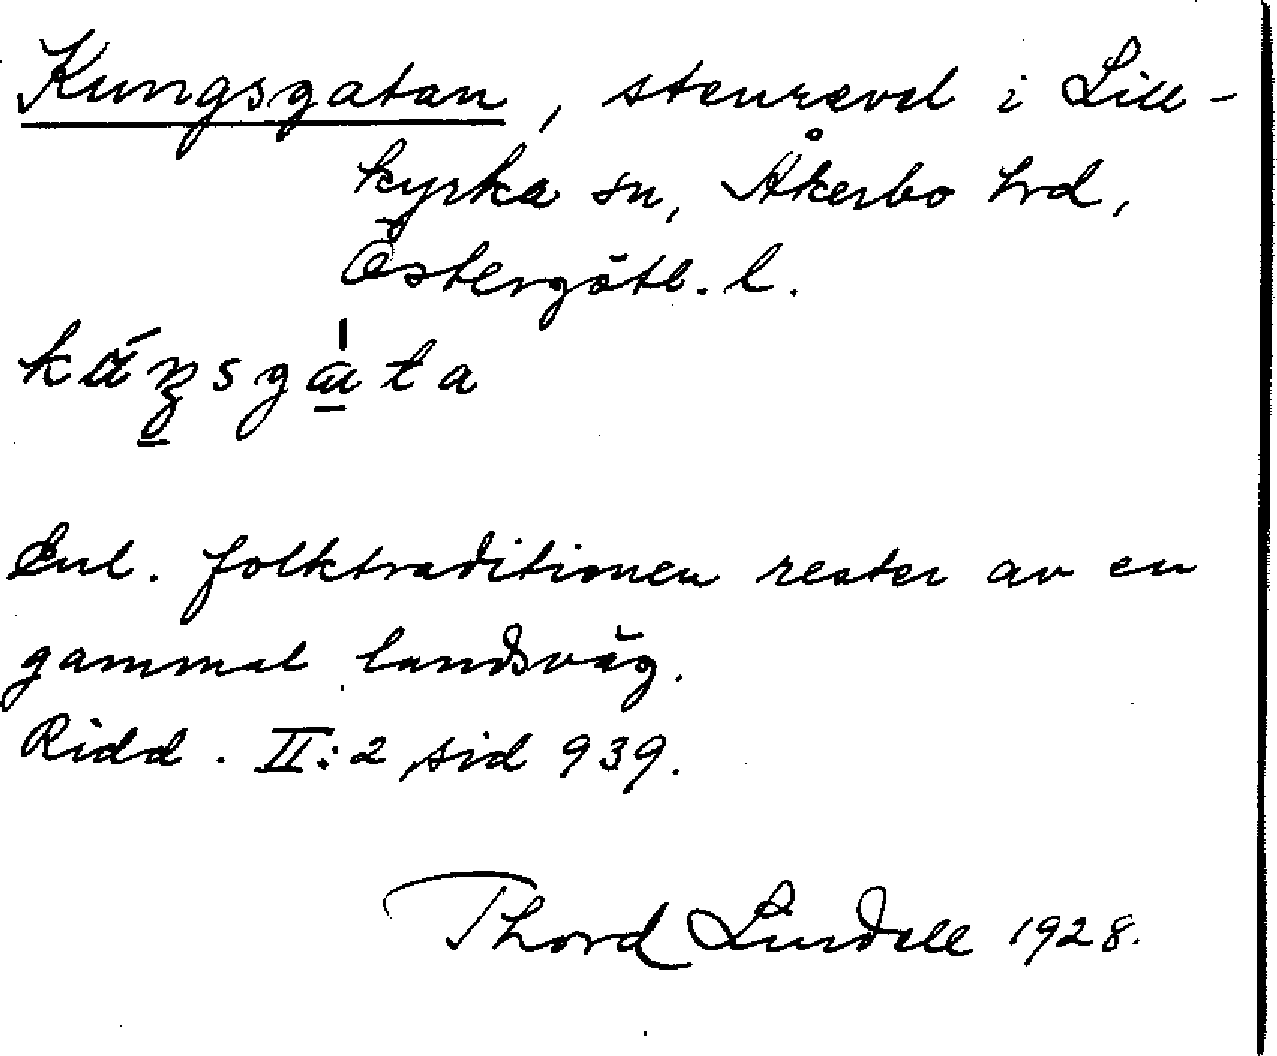 Kungsgatan, stenrevel i Lill-
kyrka sn, Åkerbo hrd,
Östergötl. l.
Enl. folktraditionen rester av en
gammal landsväg.
Ridd. II:2 sid 939.
Thord Lindell 1928.